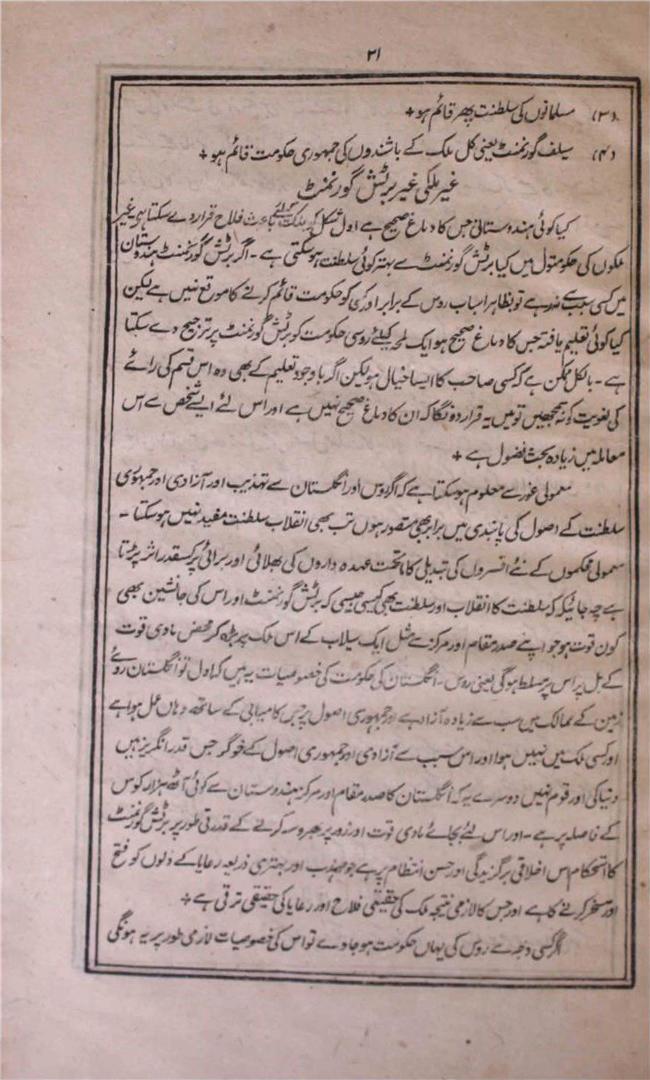 ۲۱
(۳) مسلمانوں کی سلطنت پھر قائم ہو +
(۴) سیلف گورنمنٹ یعنی کل ملک کے باشندوں کی جمہوری حکومت قائم ہو +
غیر ملکی غیر برٹش گورنمنٹ
کیا کوئی ہندوستانی جس کا دماغ صحیح ہے اول شکل کو ملک کے لئے باعث فلاح قرار دے سکتا ہے غیر
ملکوں کی حکومتوں میں کیا برٹش گورنمنٹ سے بہتر کوئی سلطنت ہو سکتی ہے - اگر برٹش گورنمنٹ ہندوستان
میں کسی سبب سے نہ رہے تو بظاہر اسباب روس کے برابر اور کسی کو حکومت قائم کرنے کا موقع نہیں ہے لیکن
کیا کوئی تعلیم یافتہ جس کا دماغ صحیح ہو ایک لمحہ کیلئے روسی حکومت کو برٹش گورنمنٹ پر ترجیح دے سکتا
ہے - بالکل ممکن ہے کہ کسی صاحب کا ایسا خیال ہو لیکن اگر باوجود تعلیم کے بھی وہ اس قسم کی رائے
کی لغویت کو نہ سمجھیں تو میں یہ قرار دونگا کہ ان کا دماغ صحیح نہیں ہے اور اس لئے ایسے شخص سے اس
معاملہ میں زیادہ بحث فضول ہے +
معمولی غور سے معلوم ہو سکتا ہے کہ اگر روس اور انگلستان سے تہذیب اور آزادی اور جمہوری
سلطنت کے اصول کی پابندی میں برابر بھی متصور ہوں تب بھی انقلاب سلطنت مفید نہیں ہو سکتا -
معمولی محکموں کے نئے افسروں کی تبدیلی کا ماتحت عہدہ داروں کی بھلائی اور برائی پر کسقدر اثر پڑتا
ہے چہ جائیکہ کہ سلطنت کا انقلاب اور سلطنت بھی کیسی جیسی کہ برٹش گورنمنٹ اور اس کی جانشین بھی
کون قوت ہو جو اپنے صدر مقام اور مرکز سے مثل ایک سیلاب کے اس ملک پر بڑھ کر محض مادی قوت
کے بل پر اس پر مسلط ہو گی یعنی روس - انگلستان کی حکومت کی خصوصیات یہ ہیں کہ اول تو انگلستان روئے
زمین کے ممالک میں سب سے زیادہ آزاد ہے اور جمہوری اصول پر جس کامیابی کے ساتھ وہاں عمل ہوا ہے
اور کسی ملک میں نہیں ہوا اور اس سبب سے آزادی اور جمہوری اصول کے خوگر جس قدر انگریز ہیں
دنیا کی اور قوم نہیں دوسرے یہ کہ انگلستان کا صدر مقام اور مرکز ہندوستان سے کوئی آٹھ ہزار کوس
کے فاصلہ پر ہے - اور اس لئے بجائے مادی قوت اور زور پر بھروسہ کرنے کے قدرتی طور پر برٹش گورنمنٹ
کا استحکام اس اخلاقی برگزیدگی اور حسن انتظام پر ہے جو مہذب اور بہتری ذریعہ رعایا کے دلوں کو فتح
اور مسخر کرنے کا ہے اور جس کا لازمی نتیجہ ملک کی حقیقی فلاح اور رعایا کی حقیقی ترقی ہے +
اگر کسی وجہ سے روس کی یہاں حکومت ہو جاوے تو اس کی خصوصیات لازمی طور پر یہ ہونگی